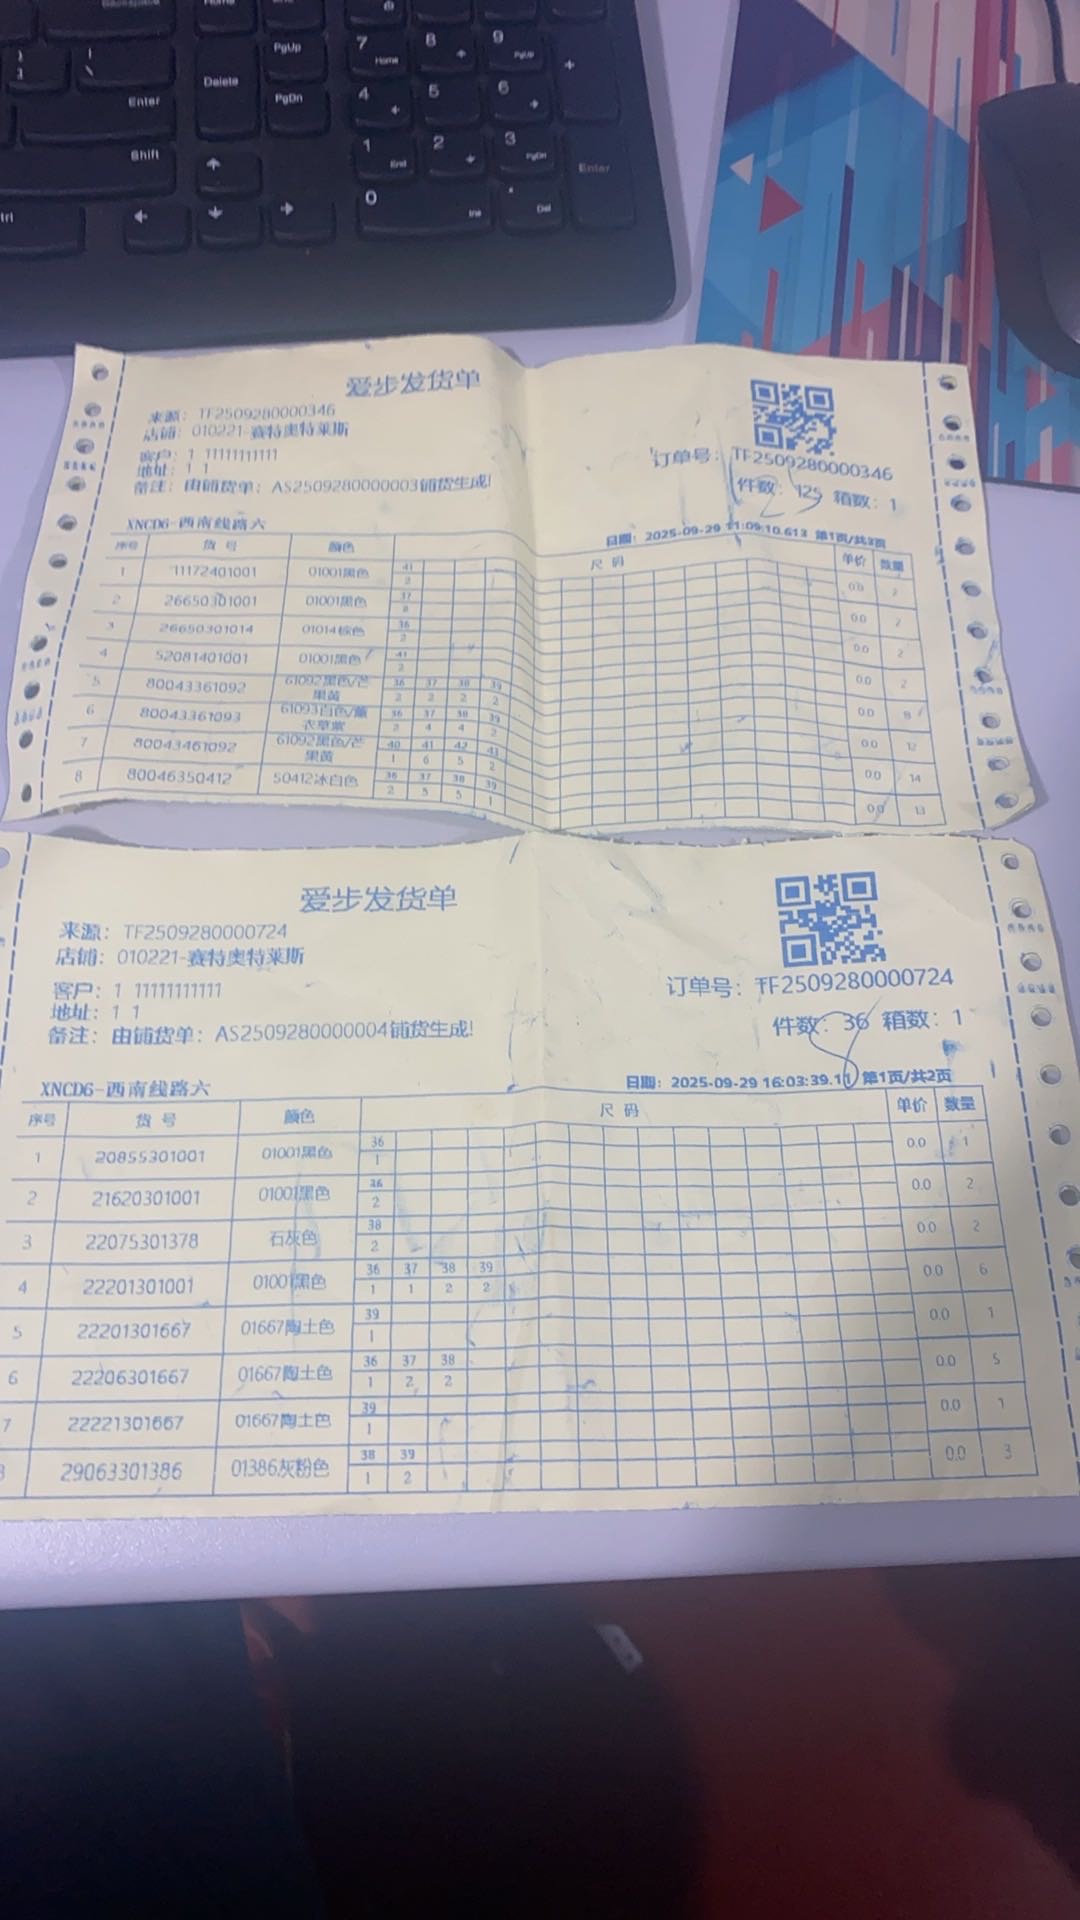 Backspace
Home
PgUp
7 Home
8
9 PgUp
+
Enter
Delete
PgDn
4
5
6
Shift
1 End
2
3 PgDn
Enter
0 Ins
. Del
爱步发货单
来源: TF2509280000346
店铺: 010221-赛特奥特莱斯
客户: 1 11111111111
地址: 1 1
备注: 由铺货单: AS2509280000003铺货生成!
订单号: TF2509280000346
件数: 125 箱数: 1
XNCD6-西南线路六
日期: 2025-09-29 11:09:10.613 第1页/共3页
序号 货号 颜色 尺码 单价 数量
41
1 11172401001 01001黑色 2 0.0 2
37
2 26650301001 01001黑色 0.0 2
36
3 26650301014 01014棕色 2 0.0 2
41
4 52081401001 01001黑色 2 0.0 2
36 37 38 39
5 80043361092 61092黑色/芒果黄 2 2 2 2 0.0 8
36 37 38 39
6 80043361093 61093白色/薰衣草紫 2 4 4 2 0.0 12
40 41 42 43
7 80043461092 61092黑色/芒果黄 1 6 5 2 0.0 14
36 37 38 39
8 80046350412 50412冰白色 2 5 5 1 0.0 13
爱步发货单
来源: TF2509280000724
店铺: 010221-赛特奥特莱斯
客户: 1 11111111111
地址: 1 1
备注: 由铺货单: AS2509280000004铺货生成!
订单号: TF2509280000724
件数: 36 箱数: 1
XNCD6-西南线路六
日期: 2025-09-29 16:03:39.11 第1页/共2页
序号 货号 颜色 尺码 单价 数量
36
1 20855301001 01001黑色 1 0.0 1
36
2 21620301001 01001黑色 2 0.0 2
38
3 22075301378 石灰色 2 0.0 2
36 37 38 39
4 22201301001 01001黑色 1 1 2 2 0.0 6
39
5 22201301667 01667陶土色 1 0.0 1
36 37 38
6 22206301667 01667陶土色 1 2 2 0.0 5
39
7 22221301667 01667陶土色 1 0.0 1
38 39
8 29063301386 01386灰粉色 1 2 0.0 3